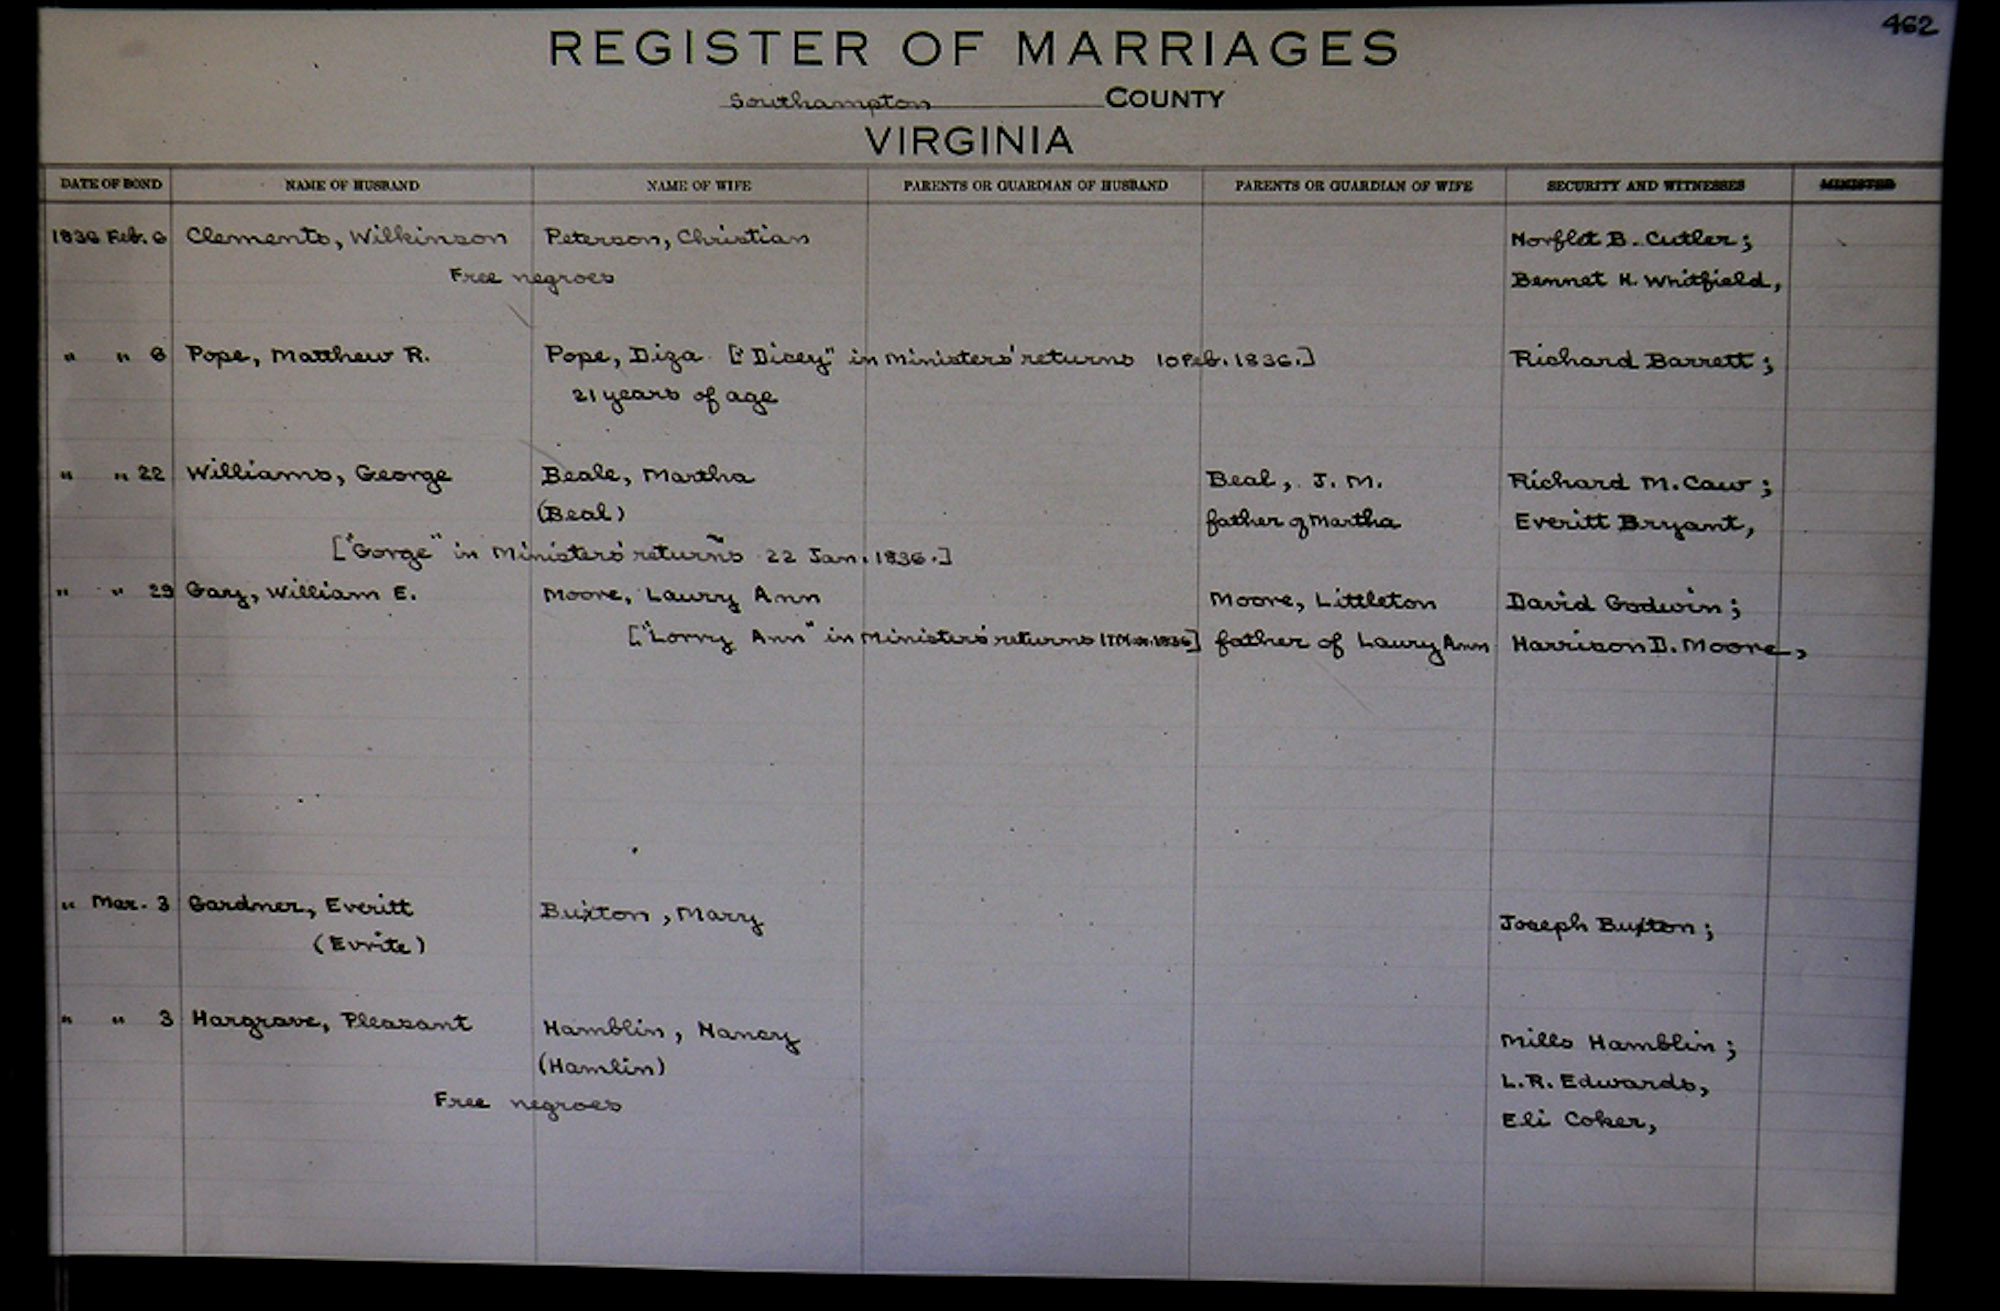 462
REGISTER OF MARRIAGES
Southampton COUNTY
VIRGINIA
DATE OF BOND NAME OF HUSBAND NAME OF WIFE PARENTS OR GUARDIAN OF HUSBAND PARENTS OR GUARDIAN OF WIFE SECURITY AND WITNESSES MINISTER
1836 Feb. 6 Clements, Wilkinson Peterson, Christian Norflet B. Cutler;
Free negroes Bennet H. Whitfield,
" " 6 Pope, Matthew R. Pope, Diza ["Dicey" in Ministers' returns 10 Feb. 1836.] Richard Barrett;
21 years of age
" " 22 Williams, George Beale, Martha Beal, J. M. Richard M. Caw;
(Beal) father of Martha Everitt Bryant,
["Gorge" in Ministers' returns 22 Jan. 1836.]
" " 29 Gary, William E. Moore, Laury Ann Moore, Littleton David Godwin;
["Lorry Ann" in Ministers' returns 1836] father of Laury Ann Harrison D. Moore,
" Mar. 3 Gardner, Everitt Buxton, Mary Joseph Buxton;
(Evrite)
" " 3 Hargrave, Pleasant Hamblin, Nancy Mills Hamblin;
(Hamlin) L.R. Edwards,
Free negroes Eli Coker,